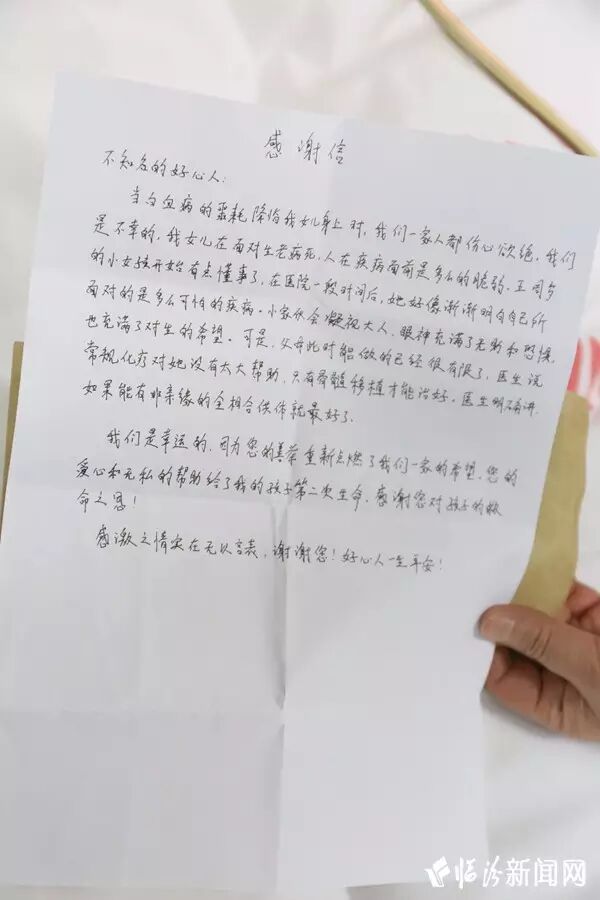 感谢信
不知名的好心人:
当白血病的噩耗降临我女儿身上时,我们一家人都伤心欲绝,我们
是不幸的,我女儿在面对生老病死,人在疾病面前是多么的脆弱。五周岁
的小女孩开始有点懂事了,在医院一段时间后,她好像渐渐明白自己所
面对的是多么可怕的疾病。小家伙会凝视大人,眼神充满了无助和恐惧
也充满了对生的希望。可是,父母此时能做的已经很有限了,医生说
常规化疗对她没有太大帮助,只有骨髓移植才能治好。医生明确讲
如果能有非亲缘的全相合供体就最好了。
我们是幸运的,因为您的善举重新点燃了我们一家的希望,您的
爱心和无私的帮助给了我的孩子第二次生命,感谢您对孩子的救
命之恩!
感激之情实在无以言表,谢谢您!好心人一生平安!
临汾新闻网